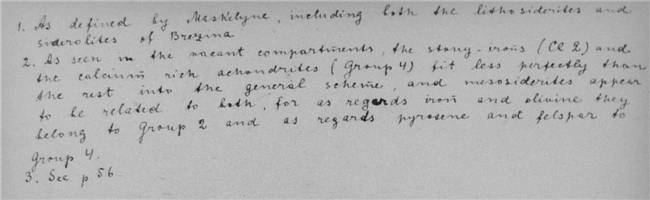 1. As defined by Maskelyne, including both the lithosiderites and
siderolites of Brezina
2. As seen in the vacant compartments, the stony-irons (Cl 2) and
the calcium rich achondrites (Group 4) fit less perfectly than
the rest into the general scheme, and mesosiderites appear
to be related to both, for as regards iron and olivine they
belong to Group 2 and as regards pyroxene and felspar to
Group 4.
3. See p 56.